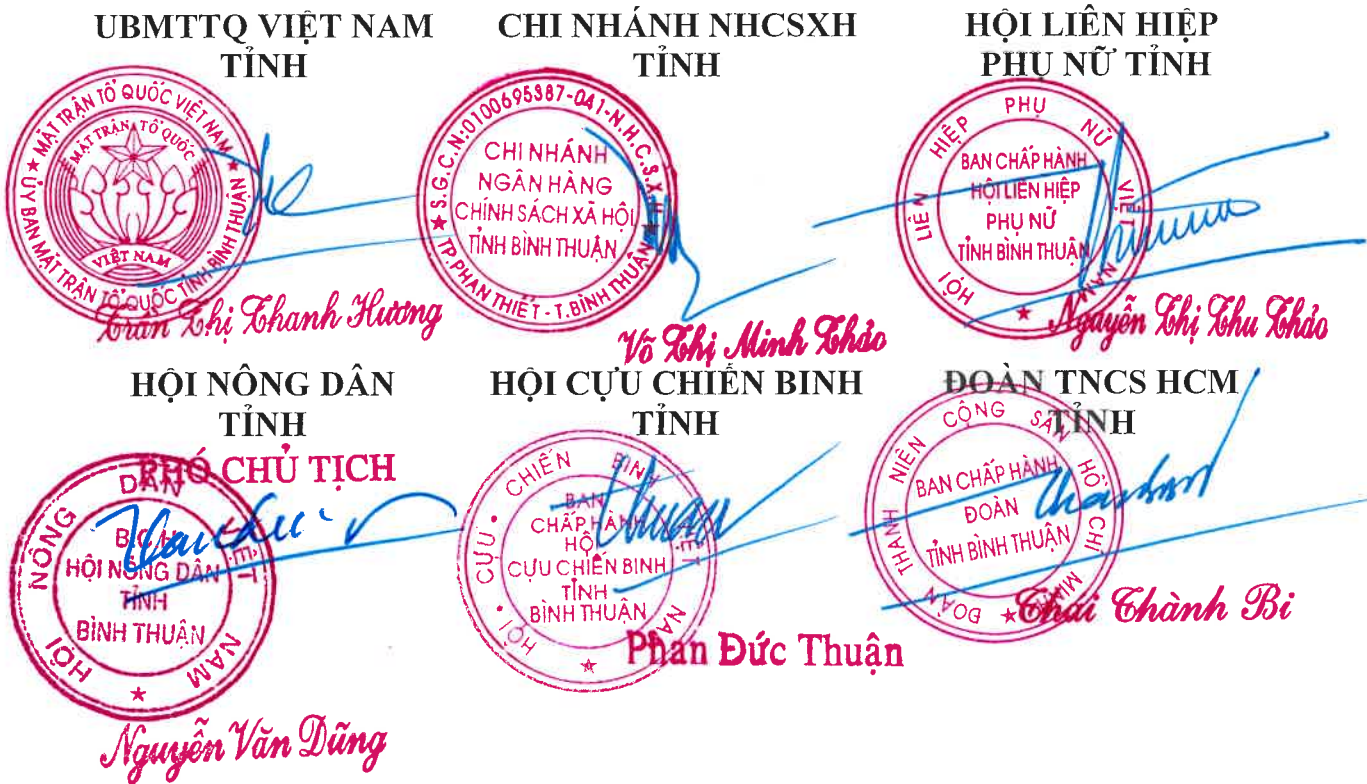 UBMTTQ VIỆT NAM
TỈNH
ỦY BAN MẶT TRẬN TỔ QUỐC TỈNH BÌNH THUẬN ★ MẶT TRẬN TỔ QUỐC VIỆT NAM ★
MẶT TRẬN TỔ QUỐC
VIỆT NAM
Trần Thị Thanh Hương
CHI NHÁNH NHCSXH
TỈNH
★ S.G.C.N:0100695387-041-N.H.C.S.X.H ★
CHI NHÁNH
NGÂN HÀNG
CHÍNH SÁCH XÃ HỘI
TỈNH BÌNH THUẬN
TP PHAN THIẾT - T.BÌNH THUẬN
Võ Thị Minh Thảo
HỘI LIÊN HIỆP
PHỤ NỮ TỈNH
HỘI LIÊN HIỆP PHỤ NỮ VIỆT NAM ★
BAN CHẤP HÀNH
HỘI LIÊN HIỆP
PHỤ NỮ
TỈNH BÌNH THUẬN
Nguyễn Thị Thu Thảo
HỘI NÔNG DÂN
TỈNH
PHÓ CHỦ TỊCH
HỘI NÔNG DÂN VIỆT NAM ★
B.C.H
HỘI NÔNG DÂN
TỈNH
BÌNH THUẬN
Nguyễn Văn Dũng
HỘI CỰU CHIẾN BINH
TỈNH
HỘI • CỰU • CHIẾN BINH VIỆT NAM ★
BAN
CHẤP HÀNH
HỘI
CỰU CHIẾN BINH
TỈNH
BÌNH THUẬN
Phan Đức Thuận
ĐOÀN TNCS HCM
TỈNH
ĐOÀN THANH NIÊN CỘNG SẢN HỒ CHÍ MINH ★
BAN CHẤP HÀNH
ĐOÀN
TỈNH BÌNH THUẬN
Thái Thành Bi